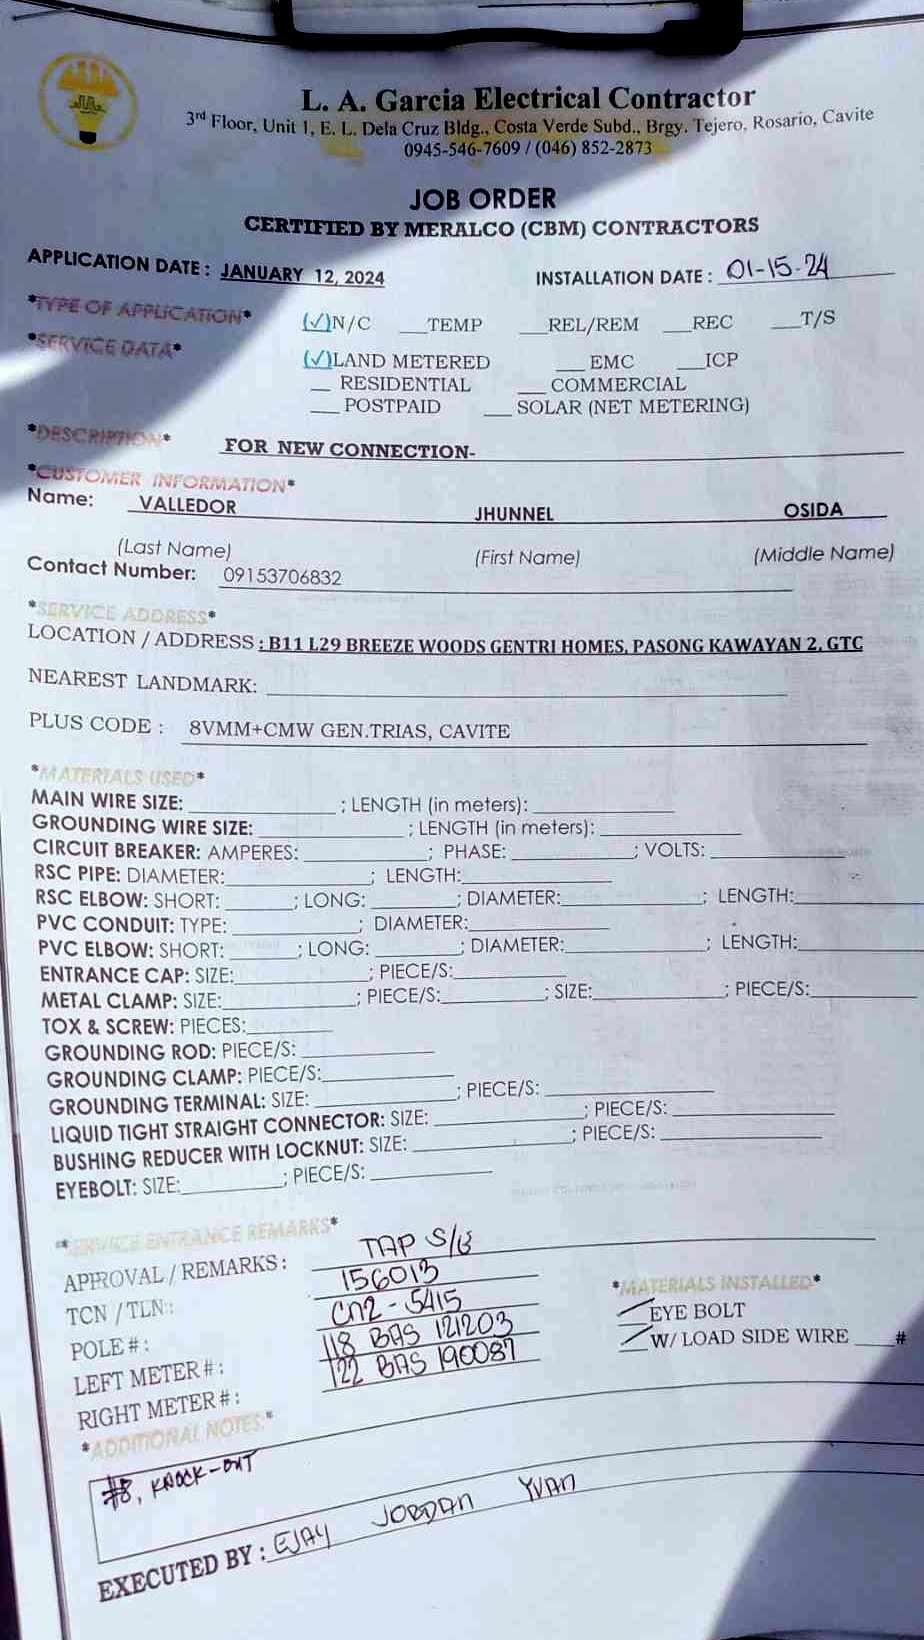 L. A. Garcia Electrical Contractor
3rd Floor, Unit 1, E. L. Dela Cruz Bldg., Costa Verde Subd., Brgy. Tejero, Rosario, Cavite
0945-546-7609 / (046) 852-2873
JOB ORDER
CERTIFIED BY MERALCO (CBM) CONTRACTORS
APPLICATION DATE : JANUARY 12, 2024 INSTALLATION DATE : 01-15-24
*TYPE OF APPLICATION* (✓)N/C ___TEMP ___REL/REM ___REC ___T/S
*SERVICE DATA* (✓)LAND METERED ___ EMC ___ICP
__ RESIDENTIAL ___ COMMERCIAL
___ POSTPAID ___ SOLAR (NET METERING)
*DESCRIPTION* FOR NEW CONNECTION-
*CUSTOMER INFORMATION*
Name: VALLEDOR JHUNNEL OSIDA
(Last Name) (First Name) (Middle Name)
Contact Number: 09153706832
*SERVICE ADDRESS*
LOCATION / ADDRESS : B11 L29 BREEZE WOODS GENTRI HOMES, PASONG KAWAYAN 2, GTC
NEAREST LANDMARK: ___
PLUS CODE : 8VMM+CMW GEN.TRIAS, CAVITE
*MATERIALS USED*
MAIN WIRE SIZE: ___ ; LENGTH (in meters): ___
GROUNDING WIRE SIZE: ___ ; LENGTH (in meters): ___
CIRCUIT BREAKER: AMPERES: ___ ; PHASE: ___ ; VOLTS: ___
RSC PIPE: DIAMETER: ___ ; LENGTH: ___
RSC ELBOW: SHORT: ___ ; LONG: ___ ; DIAMETER: ___ ; LENGTH: ___
PVC CONDUIT: TYPE: ___ ; DIAMETER: ___
PVC ELBOW: SHORT: ___ ; LONG: ___ ; DIAMETER: ___ ; LENGTH: ___
ENTRANCE CAP: SIZE: ___ ; PIECE/S: ___
METAL CLAMP: SIZE: ___ ; PIECE/S: ___ ; SIZE: ___ ; PIECE/S: ___
TOX & SCREW: PIECES: ___
GROUNDING ROD: PIECE/S: ___
GROUNDING CLAMP: PIECE/S: ___
GROUNDING TERMINAL: SIZE: ___ ; PIECE/S: ___
LIQUID TIGHT STRAIGHT CONNECTOR: SIZE: ___ ; PIECE/S: ___
BUSHING REDUCER WITH LOCKNUT: SIZE: ___ ; PIECE/S: ___
EYEBOLT: SIZE: ___ ; PIECE/S: ___
*SERVICE ENTRANCE REMARKS*
APPROVAL / REMARKS : TAP S/B
TCN / TLN : 156013
POLE # : CN2 - 5415
LEFT METER # : 118 BAS 121203
RIGHT METER # : 122 BAS 190087
*MATERIALS INSTALLED*
EYE BOLT
W/ LOAD SIDE WIRE ___#
*ADDITIONAL NOTES:*
#8, KNOCK-OUT
EXECUTED BY : EJAY JORDAN YVAN